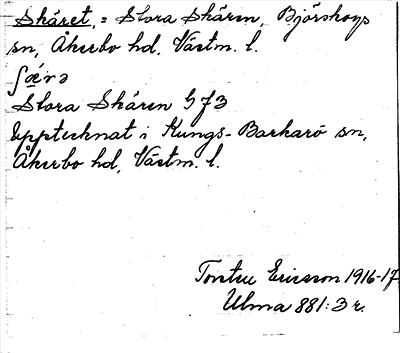 Skäret, = Stora Skären, Björskogs
sn, Åkerbo hd, Västm. l.
ʃǽrə
Stora Skären G f3
Upptecknat i Kungs-Barkarö sn,
Åkerbo hd, Västm. l.
Torsten Ericsson 1916-17
Ulma 881:3 r.